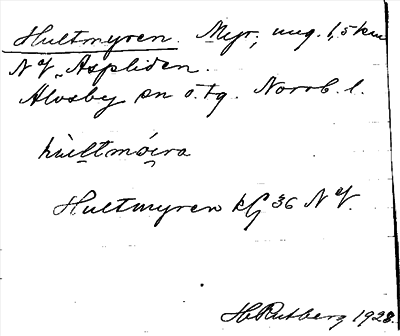 Hultmyren. Myr, ung. 1,5 km
N Aspliden.
Älvsby sn o. tg. Norrb. l.
Hultmyren kG 36 NV.
H Rutberg 1928.